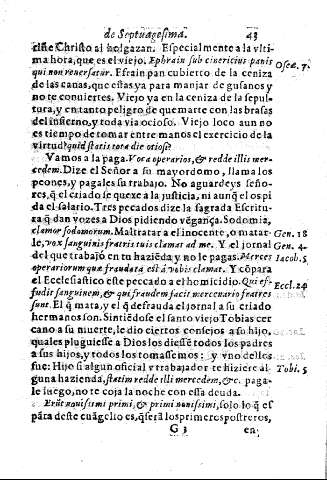 de Septuagesima. 43
ciñe Christo al holgazan. Especialmente a la vlti
ma hora, que es el viejo. Ephrain sub cinericius panis Oseæ. 7.
qui non reuersatur. Efrain pan cubierto de la ceniza
de las canas, que estas ya para manjar de gusanos y
no te conuiertes. Viejo ya en la ceniza de la sepul-
tura, y en tanto peligro de quemarte con las brasas
del infierno, y toda via ocioso. Viejo loco aun no
es tiempo de tomar entre manos el exercicio de la
virtud? quid statis tota die otiose?
Vamos a la paga. Voca operarios, & redde illis mer-
cedem. Dize el Señor a su mayordomo, llama los
peones, y pagales su trabajo. No aguardeys seño-
res, q̃ el criado se quexe a la justicia, ni aunq̃ el os pi
da el salario. Tres pecados dize la sagrada Escritu-
ra q̃ dan vozes a Dios pidiendo vẽgança. Sodomia,
clamor sodomorum. Maltratar a el inocente, o matar- Gen. 18
le, vox sanguinis fratris tui clamat ad me. Y el jornal Gen. 4.
del que trabajó en tu haziẽda, y no le pagas. Merces Iacob. 5
operariorum quæ fraudata est à vobis clamat. Y cõpara
el Ecclesiastico este peccado a el homicidio. Qui ef- Eccl. 24
fudit sanguinem, & qui fraudem facit mercenario fratres
sunt. El q̃ mata, y el q̃ defrauda el jornal a su criado
hermanos son. Sintiẽdose el santo viejo Tobias cer
cano a su muerte, le dio ciertos consejos a su hijo,
quales pluguiesse a Dios los diesse todos los padres
a sus hijos, y todos los tomassemos: y vno dellos
fue: Hijo si algun oficial y trabajador te hiziere al- Tobi. 5
guna hazienda, statim redde illi mercedem, &c. paga-
le luego, no te coja la noche con essa deuda.
Erũt nouissimi primi, & primi nouissimi, solo lo q̃ es
pãta deste euãgelio es, q̃ serã los primeros postreros,
G 3 en